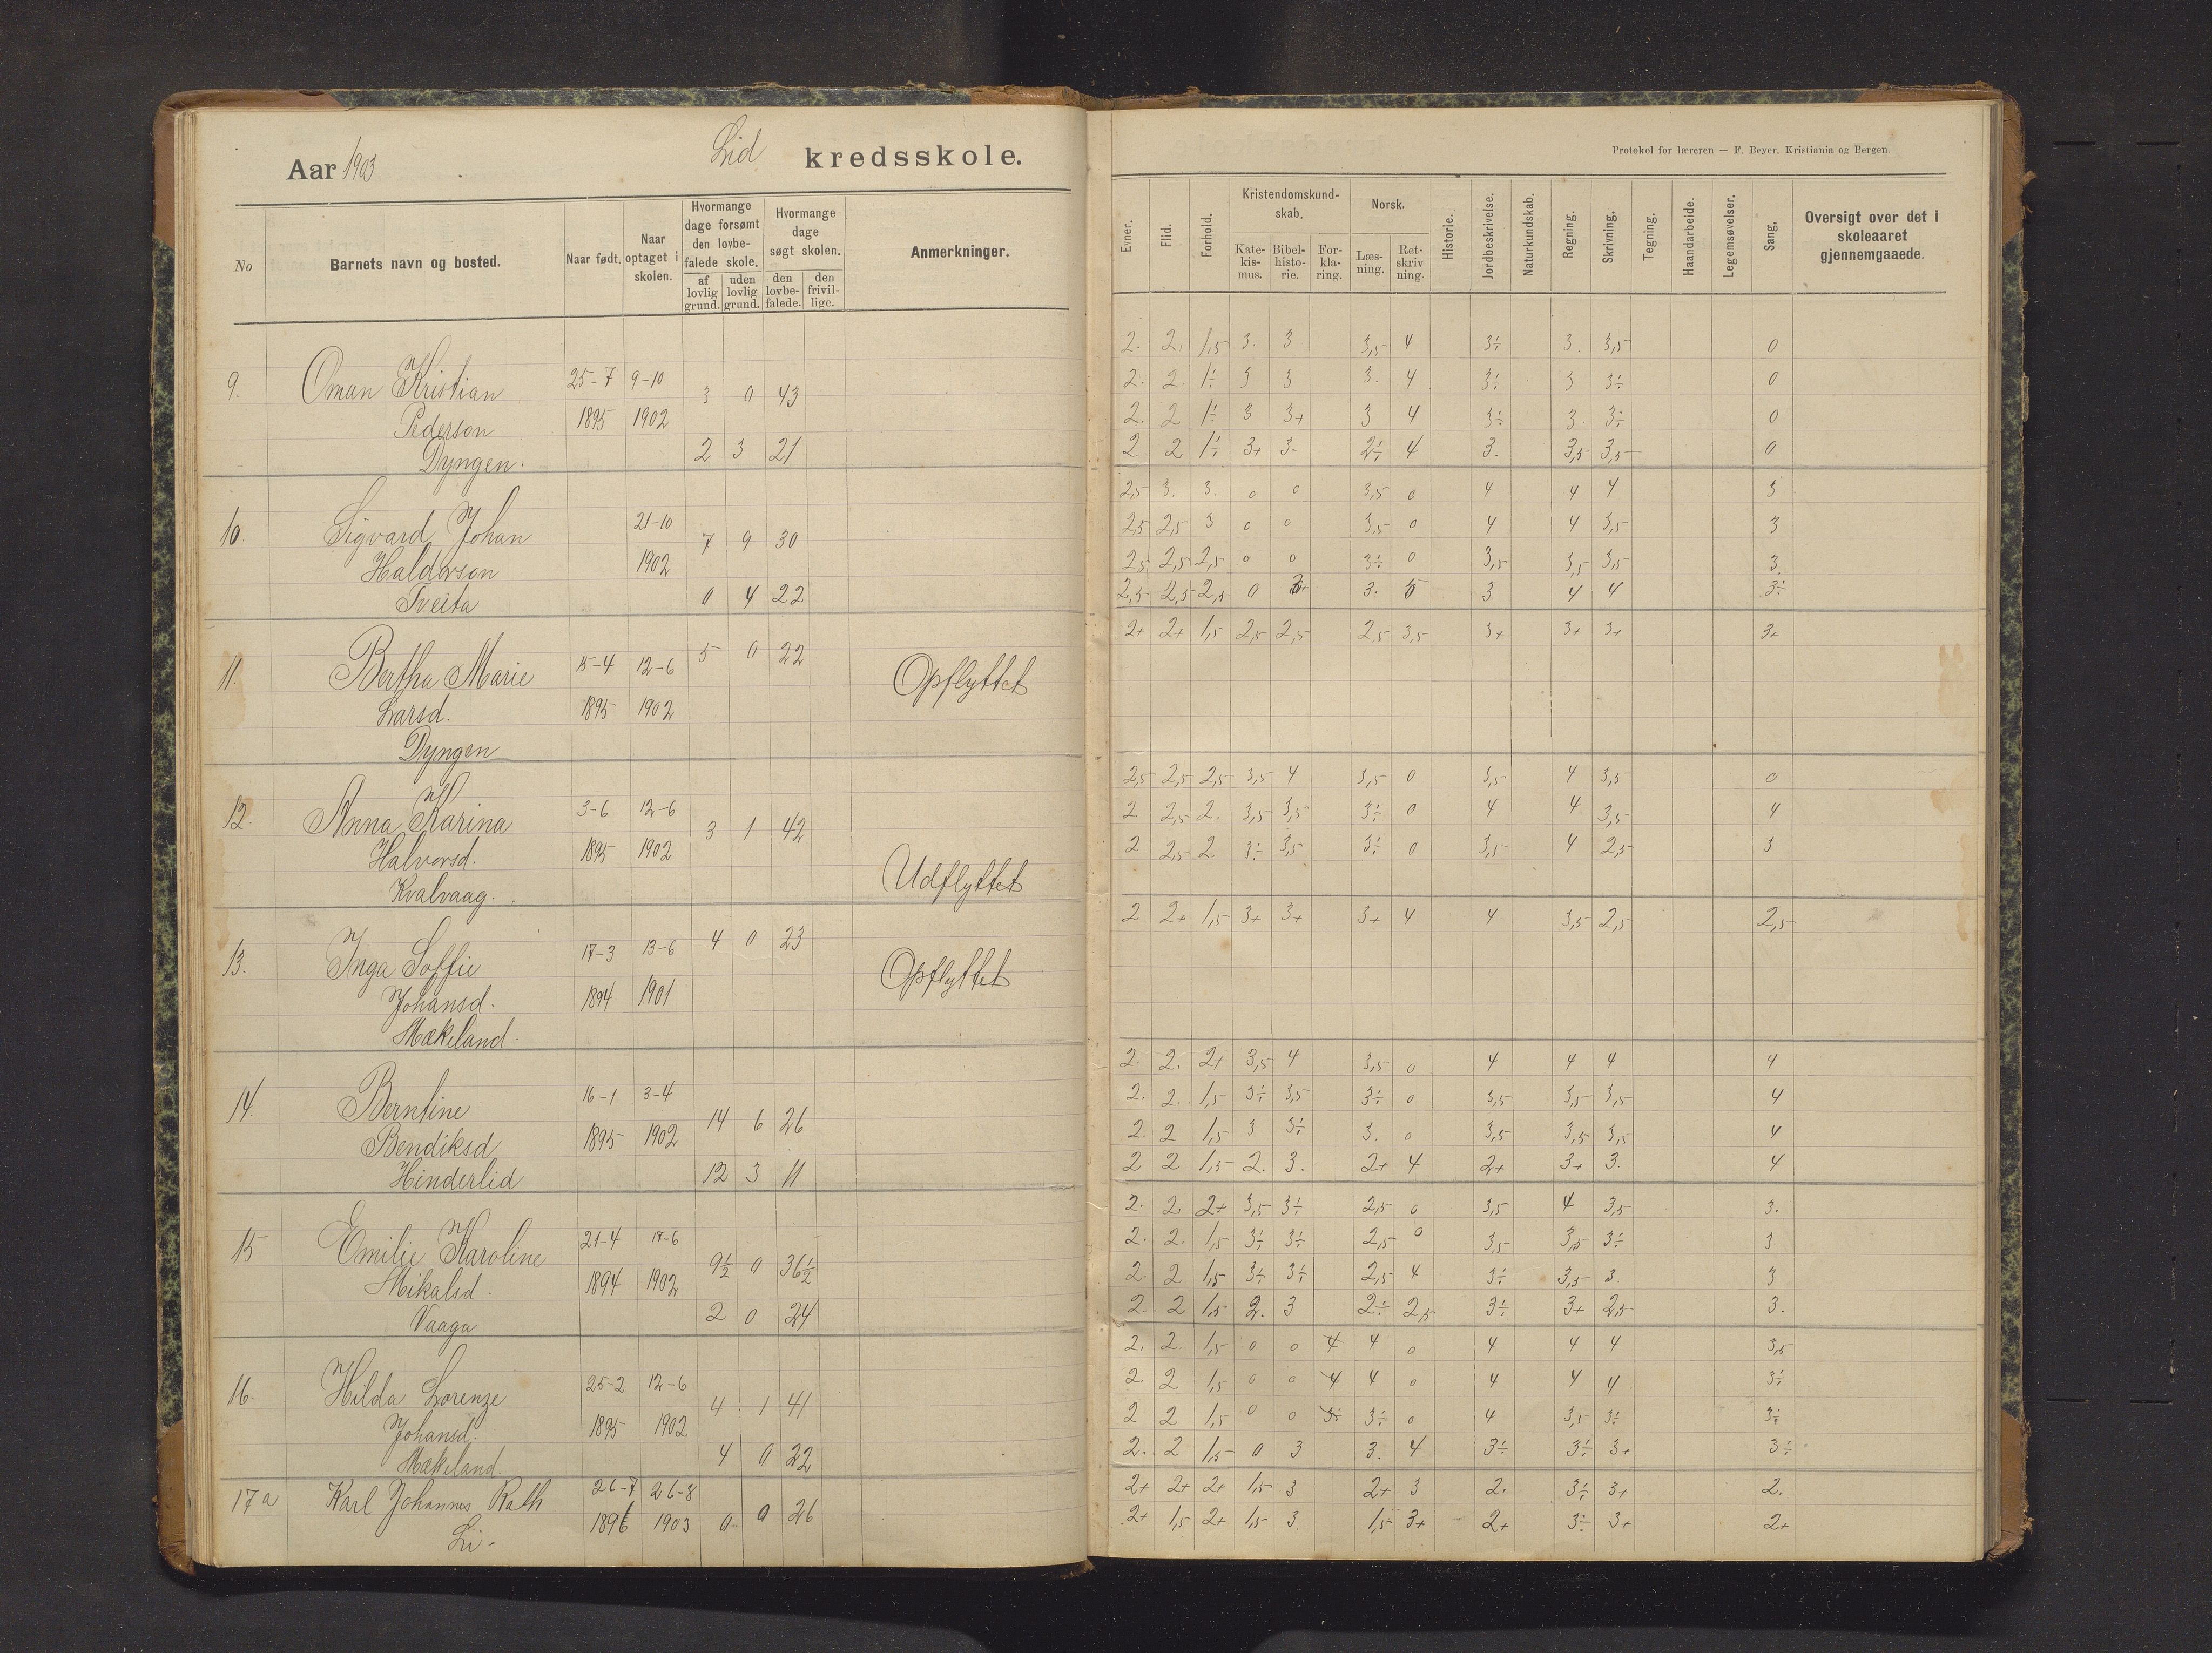 Aar 1903 Lid kredsskole.
No
Barnets navn og bosted.
Naar født.
Naar optaget i skolen.
Hvormange dage forsømt den lovbefalede skole.
af lovlig grund.
uden lovlig grund.
Hvormange dage søgt skolen.
den lovbefalede.
den frivillige.
Anmerkninger.
9. Oman Kristian 25-7 9-10 3 0 43
Pederson 1895 1902
Dyngen. 2 3 21
10. Sigvard Johan 21-10 7 9 30
Haldorson 1902
Tveita 0 4 22
11. Bertha Marie 15-4 12-6 5 0 22 Opflyttet
Larsd. 1895 1902
Dyngen
12. Anna Karina 3-6 12-6 3 1 42
Halvorsd. 1895 1902 Udflyttet
Kvalvaag.
13. Inga Soffie 17-3 13-6 4 0 23 Opflyttet
Johansd. 1894 1901
Mækeland.
14. Berntine 16-1 3-4 14 6 26
Bendiksd 1895 1902
Hinderlid 12 3 11
15 Emilie Karoline 21-4 17-6 9½ 0 36½
Mikalsd. 1894 1902
Vaaga 2 0 24
16. Hilda Lorenze 25-2 12-6 4 1 41
Johansd. 1895 1902
Mækeland. 4 0 22
17a Karl Johannes Rath 26-7 26-8
Li. 1896 1903 0 0 26
Protokol for læreren — F. Beyer. Kristiania og Bergen.
Evner.
Flid.
Forhold.
Kristendomskundskab.
Katekismus.
Bibelhistorie.
Forklaring.
Norsk.
Læsning.
Retskrivning.
Historie.
Jordbeskrivelse.
Naturkundskab.
Regning.
Skrivning.
Tegning.
Haandarbeide.
Legemsøvelser.
Sang.
Oversigt over det i skoleaaret gjennemgaaede.
2. 2. 1,5 3. 3 3,5 4 3÷ 3. 3,5 0
2. 2. 1÷ 3 3 3. 4 3÷ 3 3÷ 0
2. 2 1÷ 3 3+ 3 4 3÷ 3. 3÷ 0
2. 2 1÷ 3+ 3- 2÷ 4 3. 3,5 3,5 0
2,5 3. 3. 0 0 3,5 0 4 4 4 3
2,5 2,5 3 0 0 3,5 0 4 4 3,5 3
2,5 2,5 2,5 0 0 3÷ 0 3,5 3,5 3,5 3
2,5 2,5 2,5 0 3. 3 4 4 3÷
2+ 2+ 1,5 2,5 2,5 2,5 3,5 3+ 3+ 3+ 3+
2,5 2,5 2,5 3,5 4 3,5 0 3,5 4 3,5 0
2 2,5 2. 3,5 3,5 3÷ 0 4 4 3,5 4
2 2,5 2. 3÷ 3,5 3÷ 0 3,5 4 2,5 3
2 2+ 1,5 3+ 3+ 3+ 4 4 3,5 2,5 2,5
2. 2. 2+ 3,5 4 3,5 0 4 4 4 4
2. 2. 1,5 3÷ 3,5 3÷ 0 3,5 3,5 3,5 4
2. 2 1,5 3 3÷ 3. 0 3,5 3,5 3,5 4
2 2 1,5 2. 3. 2+ 4 2+ 3+ 3. 4
2. 2 2+ 3,5 3÷ 2,5 0 3,5 4 3,5 3.
2. 2. 1,5 3÷ 3÷ 2,5 0 3,5 3,5 3÷ 3
2. 2 1,5 3÷ 3÷ 2,5 4 3÷ 3,5 3. 3
2. 2 1,5 2. 3 2÷ 2,5 3÷ 3+ 2,5 3.
2. 2. 1,5 0 0 4 4 0 4 4 4 3,5
2. 2 1,5 0 0 4 4 0 4 4 4 3÷
2 2 1,5 0 0 3÷ 3÷ 0 4 3,5 3÷ 3÷
2. 2 1,5 0 3 3. 4 3÷ 3÷ 3+ 3÷
2+ 2+ 2+ 1,5 3 2+ 3 2. 3÷ 3+ 2.
2+ 1,5 2+ 1,5 3. 1,5 3+ 2+ 3÷ 3+ 2+